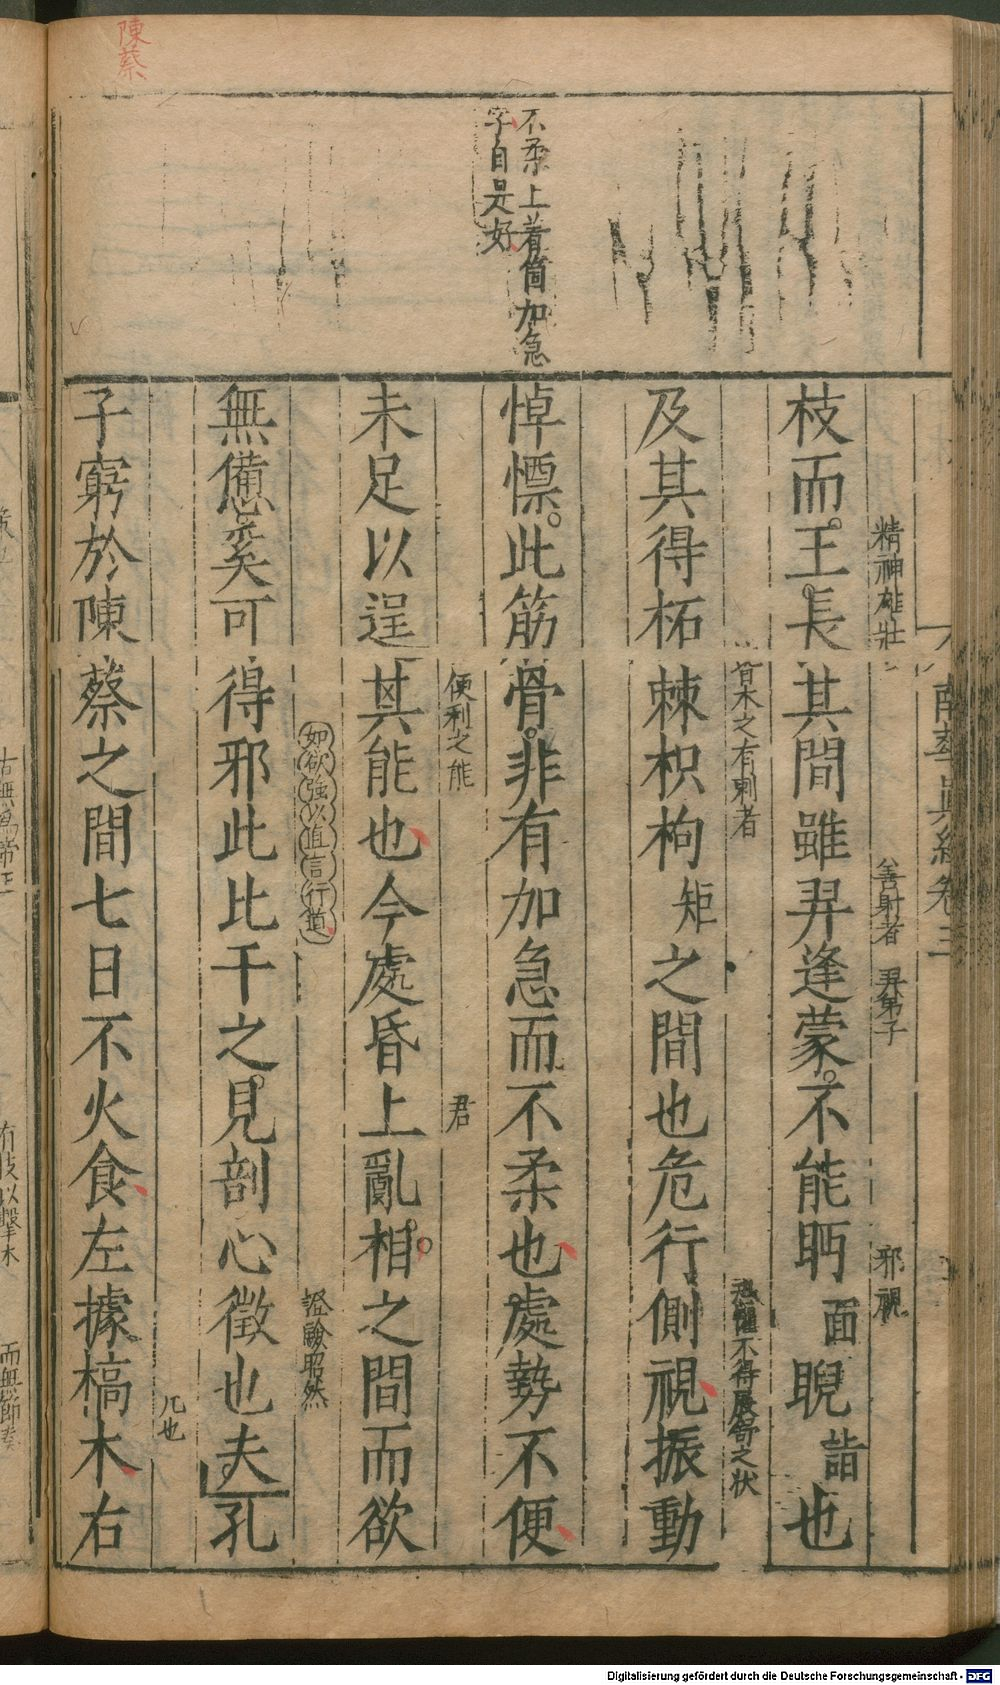 陳蔡
不柔上着箇加急
字自是好
精神雄壯
善射者
羿弟子
邪視
枝而王長其間雖羿逢蒙不能眄面睨詣也
皆木之有刺者
恐懼不得展舒之状
及其得柘棘枳枸矩之間也危行側視振動
悼慄此筋骨非有加急而不柔也處勢不便
便利之能
君
未足以逞其能也今處昏上亂相之間而欲
如欲強以直言行道
證驗昭然
無備憊奚可得邪此比干之見剖心徵也夫孔
几也
子窮於陳蔡之間七日不火食左據槁木右
南華真經卷三
有枝以擊木
而無節奏
Digitalisierung gefördert durch die Deutsche Forschungsgemeinschaft - DFG